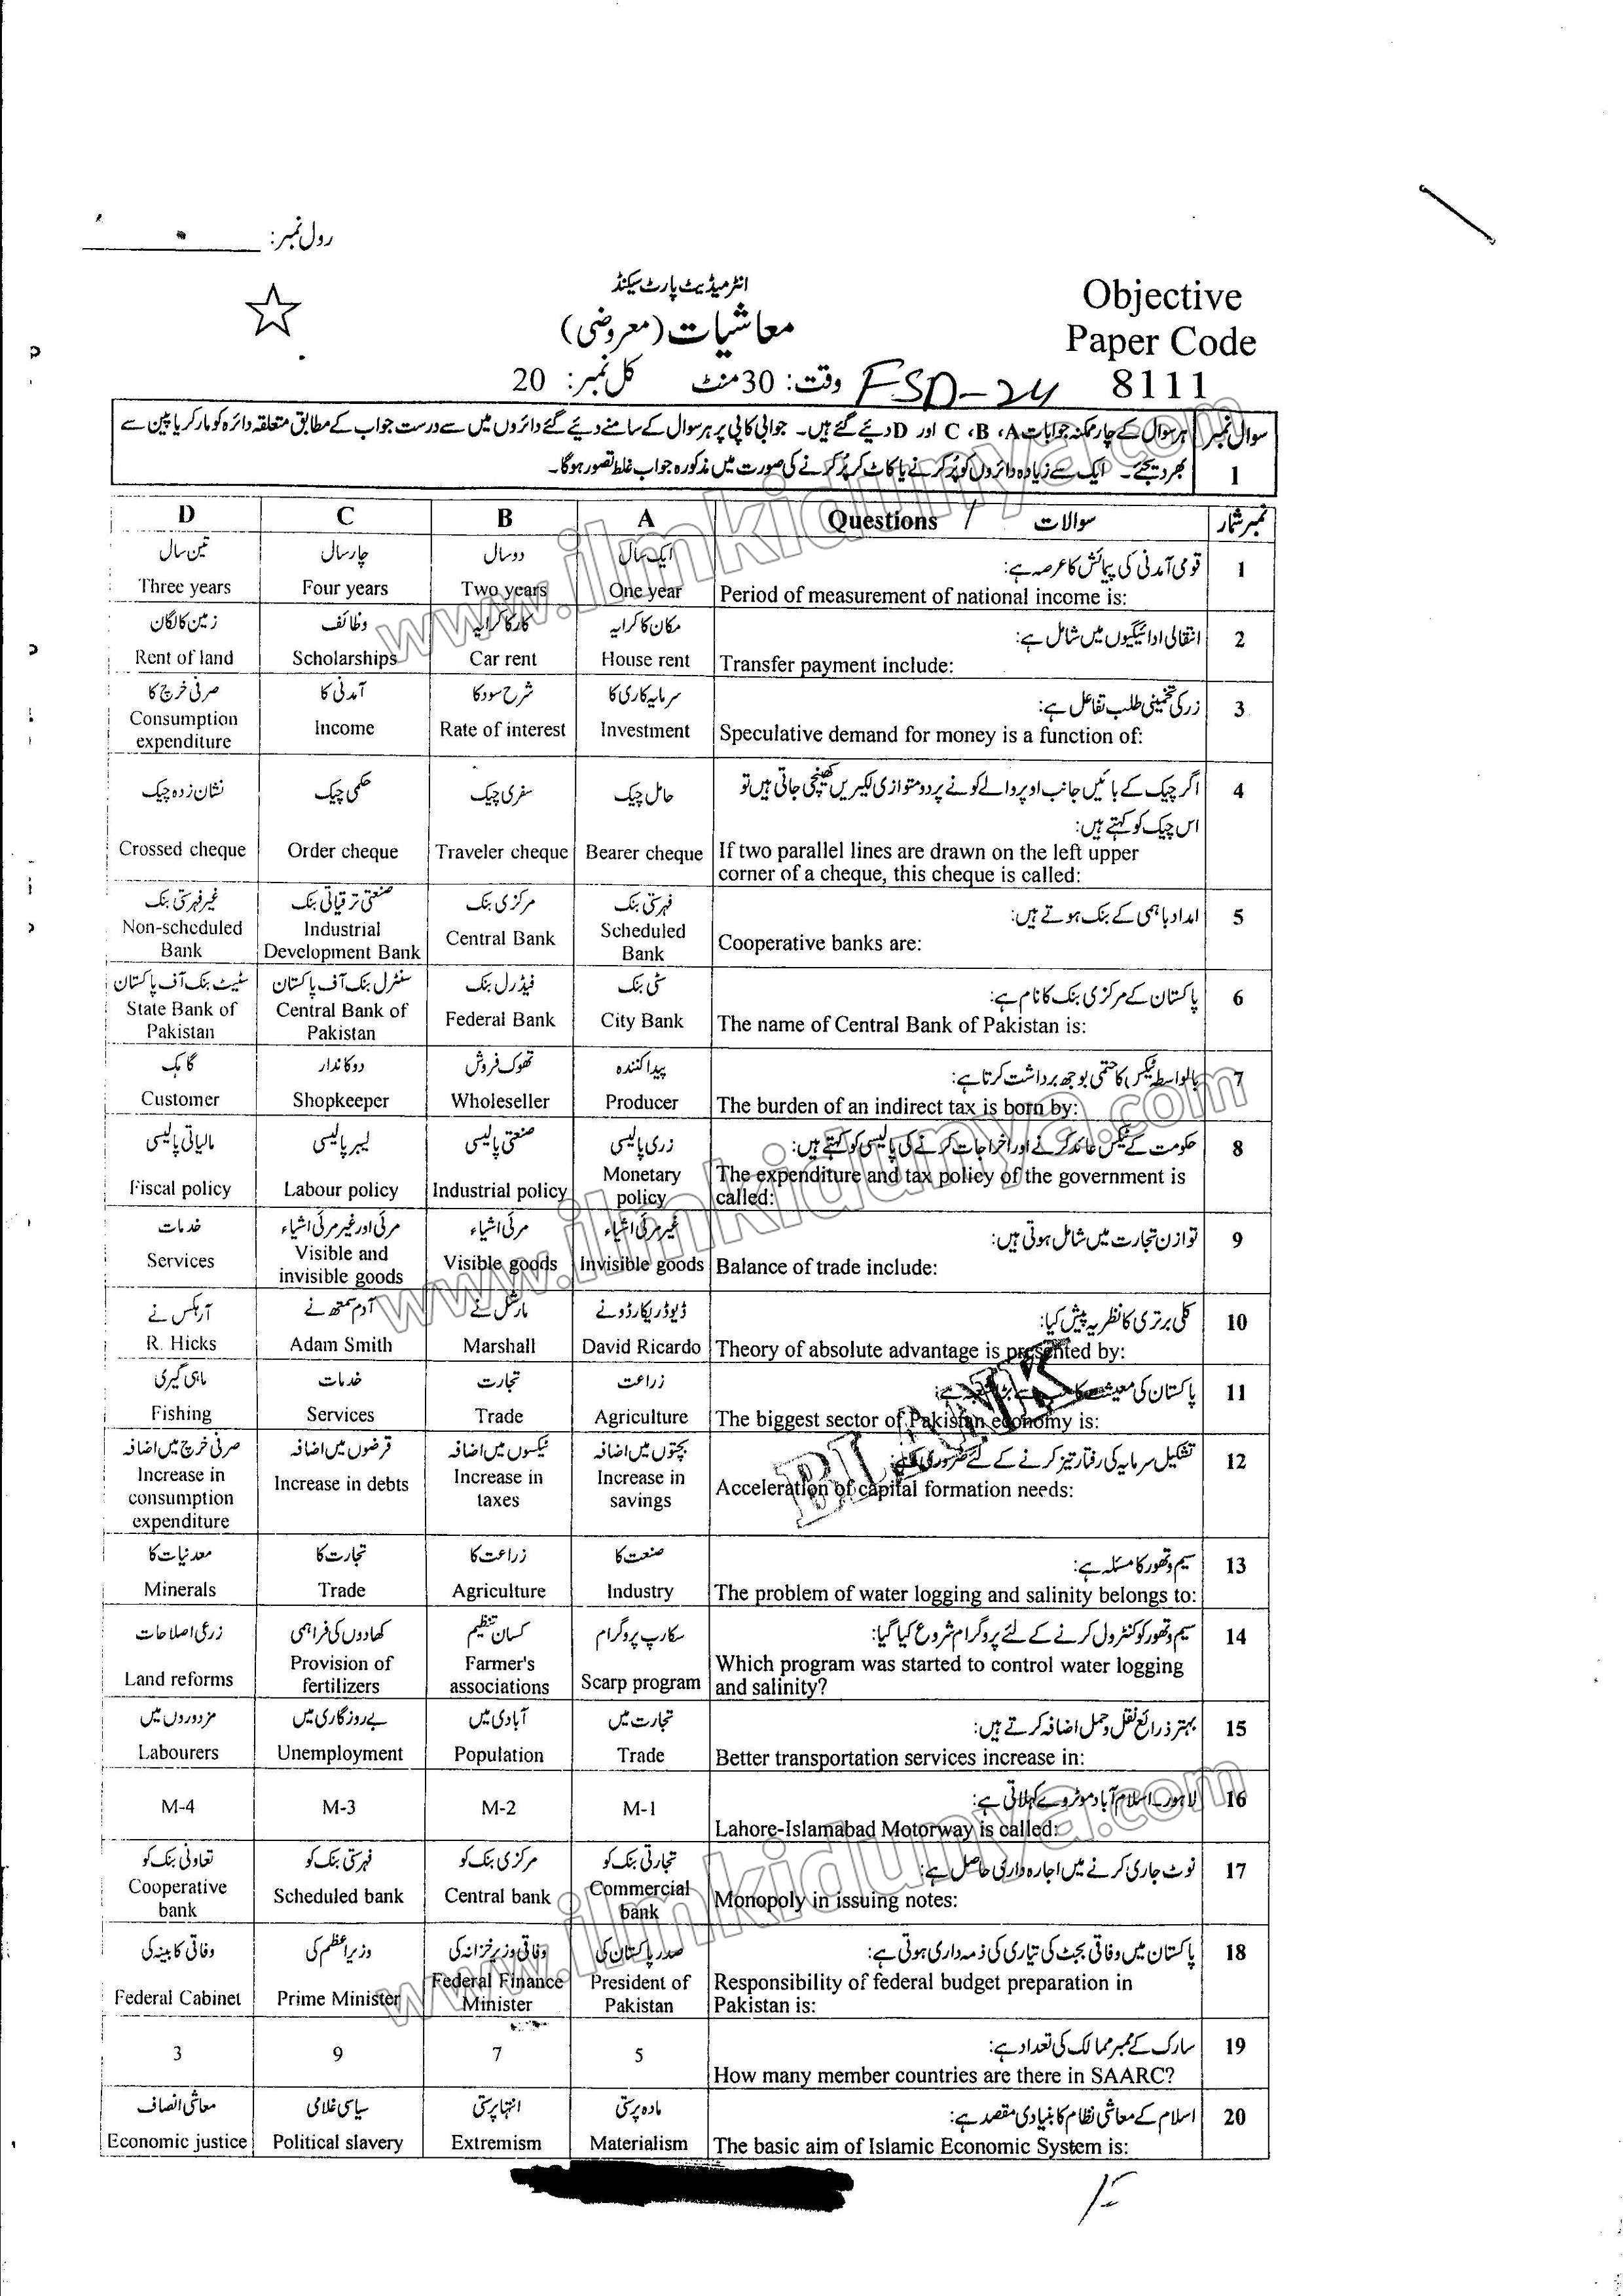 رول نمبر:
انٹرمیڈیٹ پارٹ سیکنڈ
Objective
معاشیات (معروضی)
Paper Code
وقت: 30 منٹ کل نمبر: 20
FSD-24
8111
سوال نمبر 1
ہر سوال کے چار ممکنہ جوابات A، B، C اور D دیئے گئے ہیں۔ جوابی کاپی پر ہر سوال کے سامنے دیئے گئے دائروں میں سے درست جواب کے مطابق متعلقہ دائرہ کو مارکر یا پین سے
بھر دیجئے۔ ایک سے زیادہ دائروں کو پُر کرنے یا کاٹ کر پُر کرنے کی صورت میں مذکورہ جواب غلط تصور ہوگا۔
نمبر شمار سوالات Questions A B C D
1 قومی آمدنی کی پیمائش کا عرصہ ہے: ایک سال دو سال چار سال تین سال
Period of measurement of national income is: One year Two years Four years Three years
2 انتقالی ادائیگیوں میں شامل ہے: مکان کا کرایہ کار کا کرایہ وظائف زمین کا لگان
Transfer payment include: House rent Car rent Scholarships Rent of land
3 زر کی تخمینی طلب تفاعل ہے: سرمایہ کاری کا شرح سود کا آمدنی کا صرفی خرچ کا
Speculative demand for money is a function of: Investment Rate of interest Income Consumption expenditure
4 اگر چیک کے بائیں جانب اوپر والے کونے پر دو متوازی لکیریں کھینچی جاتی ہیں تو
اس چیک کو کہتے ہیں: حامل چیک سفری چیک حکمی چیک نشان زدہ چیک
If two parallel lines are drawn on the left upper
corner of a cheque, this cheque is called: Bearer cheque Traveler cheque Order cheque Crossed cheque
5 امداد باہمی کے بنک ہوتے ہیں: فہرستی بنک مرکزی بنک صنعتی ترقیاتی بنک غیر فہرستی بنک
Cooperative banks are: Scheduled Bank Central Bank Industrial Development Bank Non-scheduled Bank
6 پاکستان کے مرکزی بنک کا نام ہے: سٹی بنک فیڈرل بنک سنٹرل بنک آف پاکستان سٹیٹ بنک آف پاکستان
The name of Central Bank of Pakistan is: City Bank Federal Bank Central Bank of Pakistan State Bank of Pakistan
7 بالواسطہ ٹیکس کا حتمی بوجھ برداشت کرتا ہے: پیدا کنندہ تھوک فروش دوکاندار گاہک
The burden of an indirect tax is born by: Producer Wholeseller Shopkeeper Customer
8 حکومت کے ٹیکس عائد کرنے اور اخراجات کرنے کی پالیسی کو کہتے ہیں: زری پالیسی صنعتی پالیسی لیبر پالیسی مالیاتی پالیسی
The expenditure and tax policy of the government is
called: Monetary policy Industrial policy Labour policy Fiscal policy
9 توازن تجارت میں شامل ہوتی ہیں: غیر مرئی اشیاء مرئی اشیاء مرئی اور غیر مرئی اشیاء خدمات
Balance of trade include: Invisible goods Visible goods Visible and invisible goods Services
10 کلی برتری کا نظریہ پیش کیا: ڈیوڈ ریکارڈو نے مارشل نے آدم سمتھ نے آر ہکس نے
Theory of absolute advantage is presented by: David Ricardo Marshall Adam Smith R. Hicks
11 پاکستان کی معیشت کا سب سے بڑا ہے: زراعت تجارت خدمات ماہی گیری
The biggest sector of Pakistan economy is: Agriculture Trade Services Fishing
12 تشکیل سرمایہ کی رفتار تیز کرنے کے لئے ضروری ہے: بچتوں میں اضافہ ٹیکسوں میں اضافہ قرضوں میں اضافہ صرفی خرچ میں اضافہ
Acceleration of capital formation needs: Increase in savings Increase in taxes Increase in debts Increase in consumption expenditure
BLANK
13 سیم و تھور کا مسئلہ ہے: صنعت کا زراعت کا تجارت کا معدنیات کا
The problem of water logging and salinity belongs to: Industry Agriculture Trade Minerals
14 سیم و تھور کو کنٹرول کرنے کے لئے پروگرام شروع کیا گیا: سکارپ پروگرام کسان تنظیم کھادوں کی فراہمی زرعی اصلاحات
Which program was started to control water logging
and salinity? Scarp program Farmer's associations Provision of fertilizers Land reforms
15 بہتر ذرائع نقل و حمل اضافہ کرتے ہیں: تجارت میں آبادی میں بے روزگاری میں مزدوروں میں
Better transportation services increase in: Trade Population Unemployment Labourers
16 لاہور۔اسلام آباد موٹروے کہلاتی ہے: M-1 M-2 M-3 M-4
Lahore-Islamabad Motorway is called:
17 نوٹ جاری کرنے میں اجارہ داری حاصل ہے: تجارتی بنک کو مرکزی بنک کو فہرستی بنک کو تعاونی بنک کو
Monopoly in issuing notes: Commercial bank Central bank Scheduled bank Cooperative bank
18 پاکستان میں وفاقی بجٹ کی تیاری کی ذمہ داری ہوتی ہے: صدر پاکستان کی وفاقی وزیر خزانہ کی وزیراعظم کی وفاقی کابینہ کی
Responsibility of federal budget preparation in
Pakistan is: President of Pakistan Federal Finance Minister Prime Minister Federal Cabinet
19 سارک کے ممبر ممالک کی تعداد ہے: 5 7 9 3
How many member countries are there in SAARC?
20 اسلام کے معاشی نظام کا بنیادی مقصد ہے: مادہ پرستی انتہا پرستی سیاسی غلامی معاشی انصاف
The basic aim of Islamic Economic System is: Materialism Extremism Political slavery Economic justice
www.ilmkidunya.com
www.ilmkidunya.com
www.ilmkidunya.com